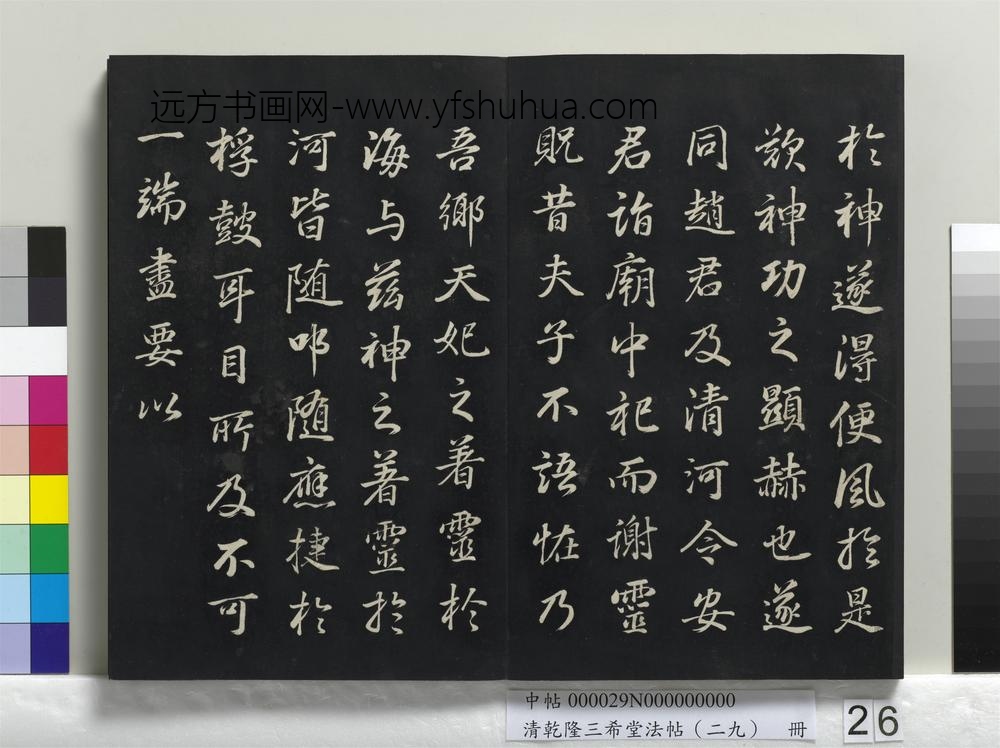 远方书画网-www.yfshuhua.com
於神遂得便風於是
歎神功之顯赫也遂
同趙君及清河令安
君詣廟中祀而謝靈
貺昔夫子不語怪乃
吾鄉天妃之着靈於
海与茲神之著靈於
河皆随叩随應捷於
桴鼓耳目所及不可
一端盡要以
中帖 000029N000000000
清乾隆三希堂法帖（二九） 冊
26